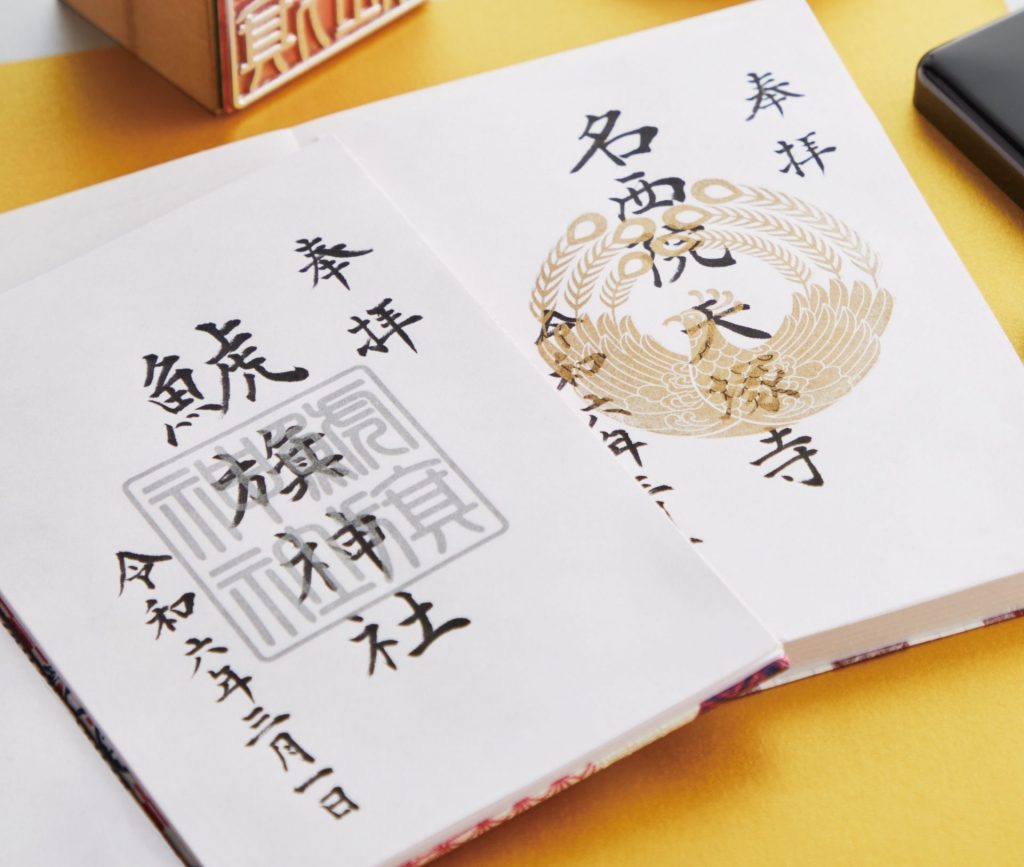 奉拝
名西院天 寺
令和六年三
奉拝
鯱旗神社
令和六年三月一日